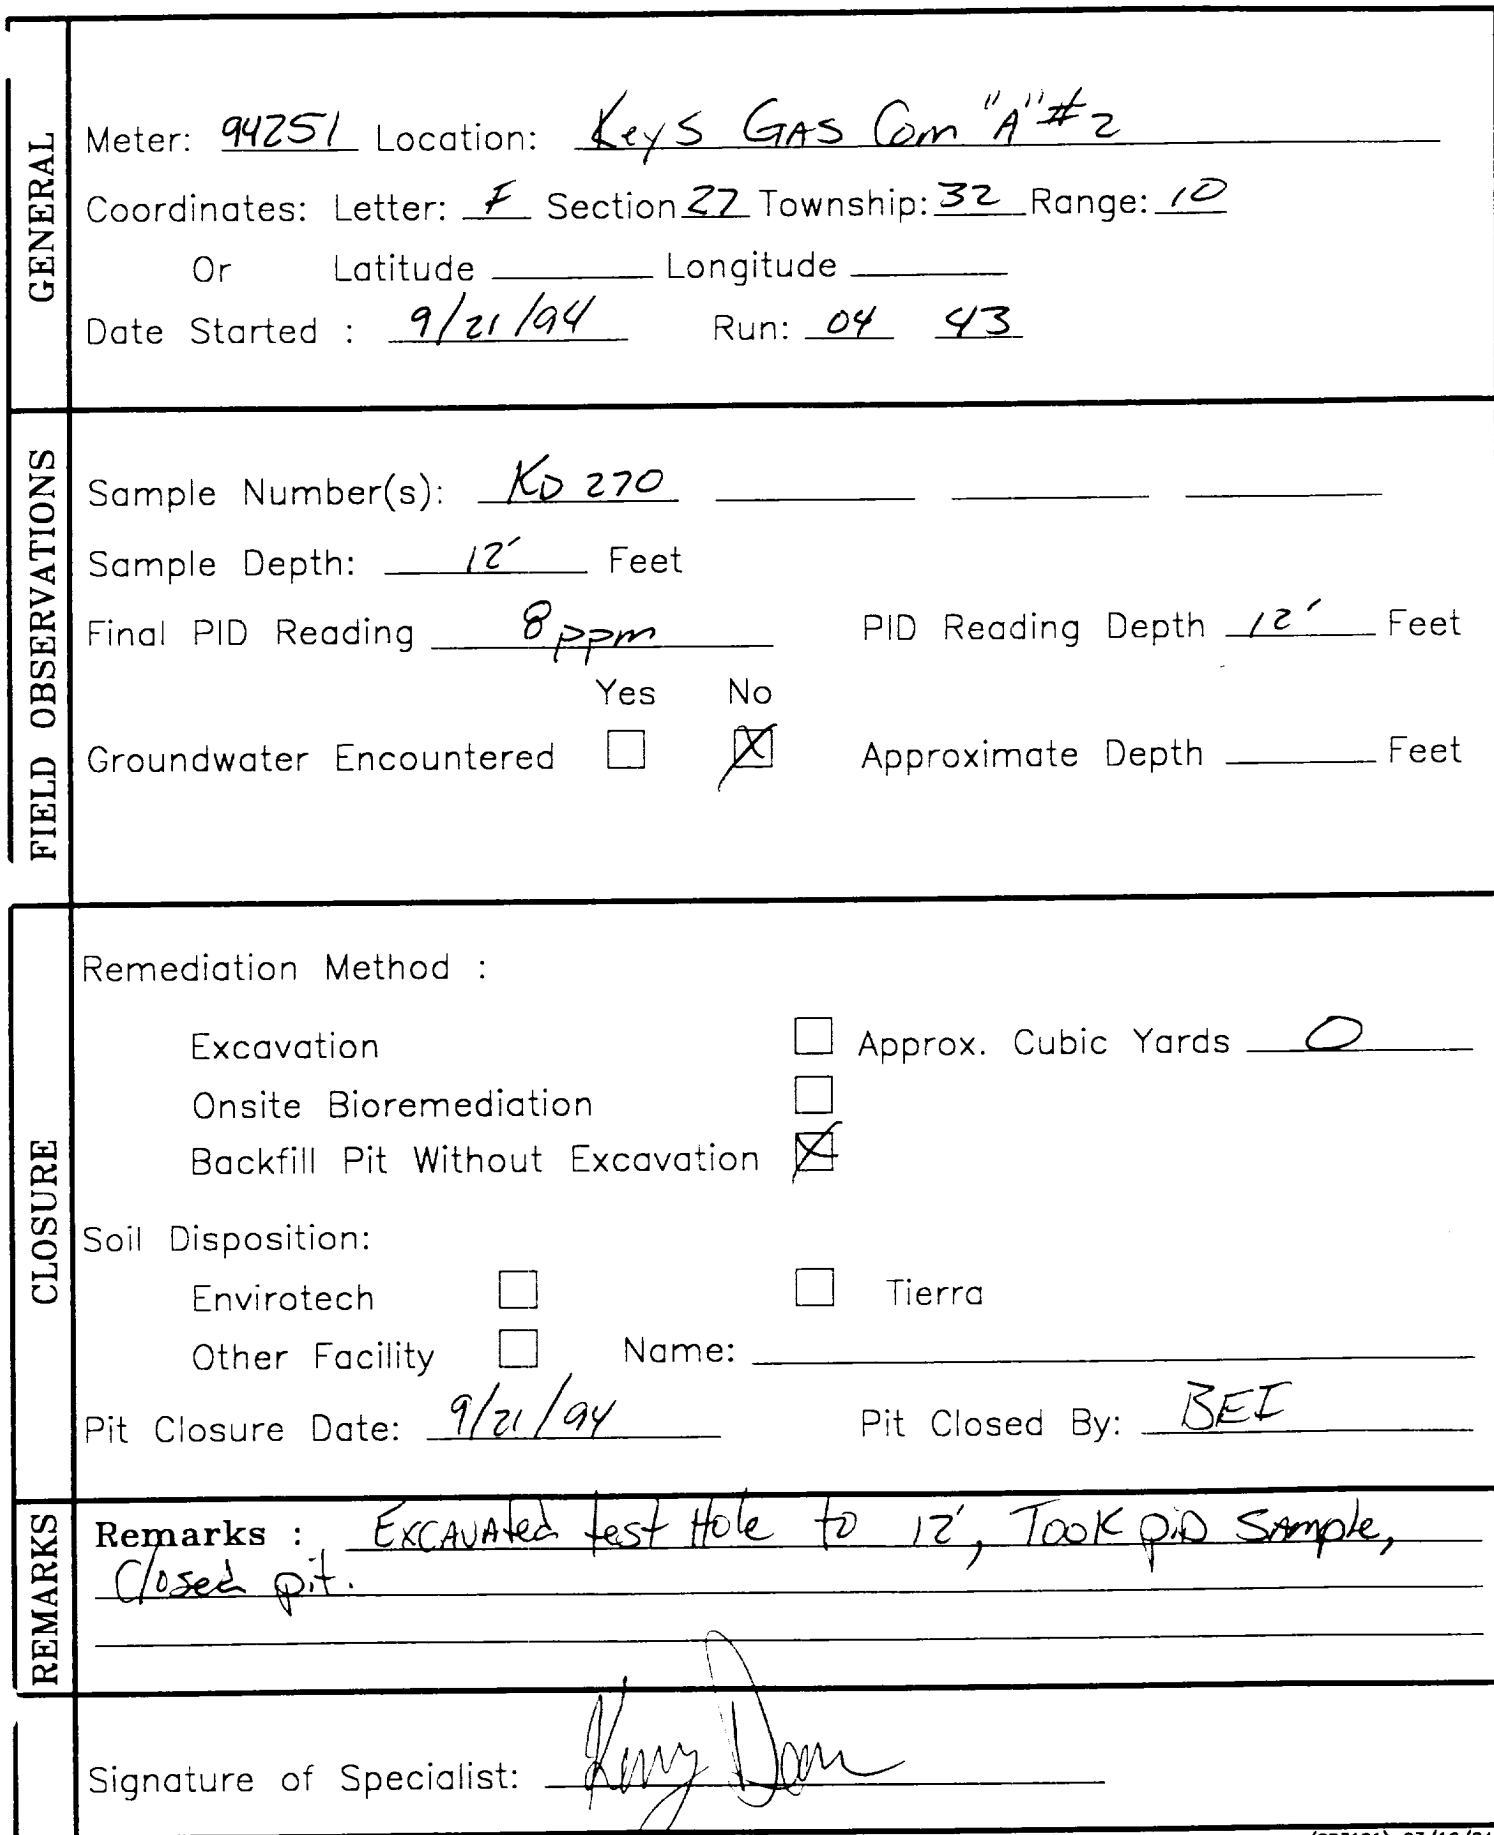 GENERAL
Meter: 94251 Location: Keys GAS Com "A" #2
Coordinates: Letter: F Section 27 Township: 32 Range: 10
Or Latitude Longitude
Date Started : 9/21/94 Run: 04 43
FIELD OBSERVATIONS
Sample Number(s): KD 270
Sample Depth: 12' Feet
Final PID Reading 8 ppm PID Reading Depth 12' Feet
Yes No
Groundwater Encountered Approximate Depth Feet
CLOSURE
Remediation Method :
Excavation Approx. Cubic Yards 0
Onsite Bioremediation
Backfill Pit Without Excavation
Soil Disposition:
Envirotech Tierra
Other Facility Name:
Pit Closure Date: 9/21/94 Pit Closed By: BEI
REMARKS
Remarks : EXCAVAted test Hole to 12', Took PID SAmple,
Closed pit.
Signature of Specialist: